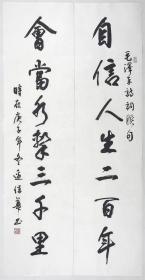 毛泽东诗词联句
自信人生二百年
會當水擊三千里
時在庚子年冬